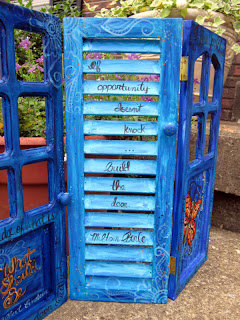 If
opportunity
doesnt
knock
...
Build
the
door
Milton Berle
What